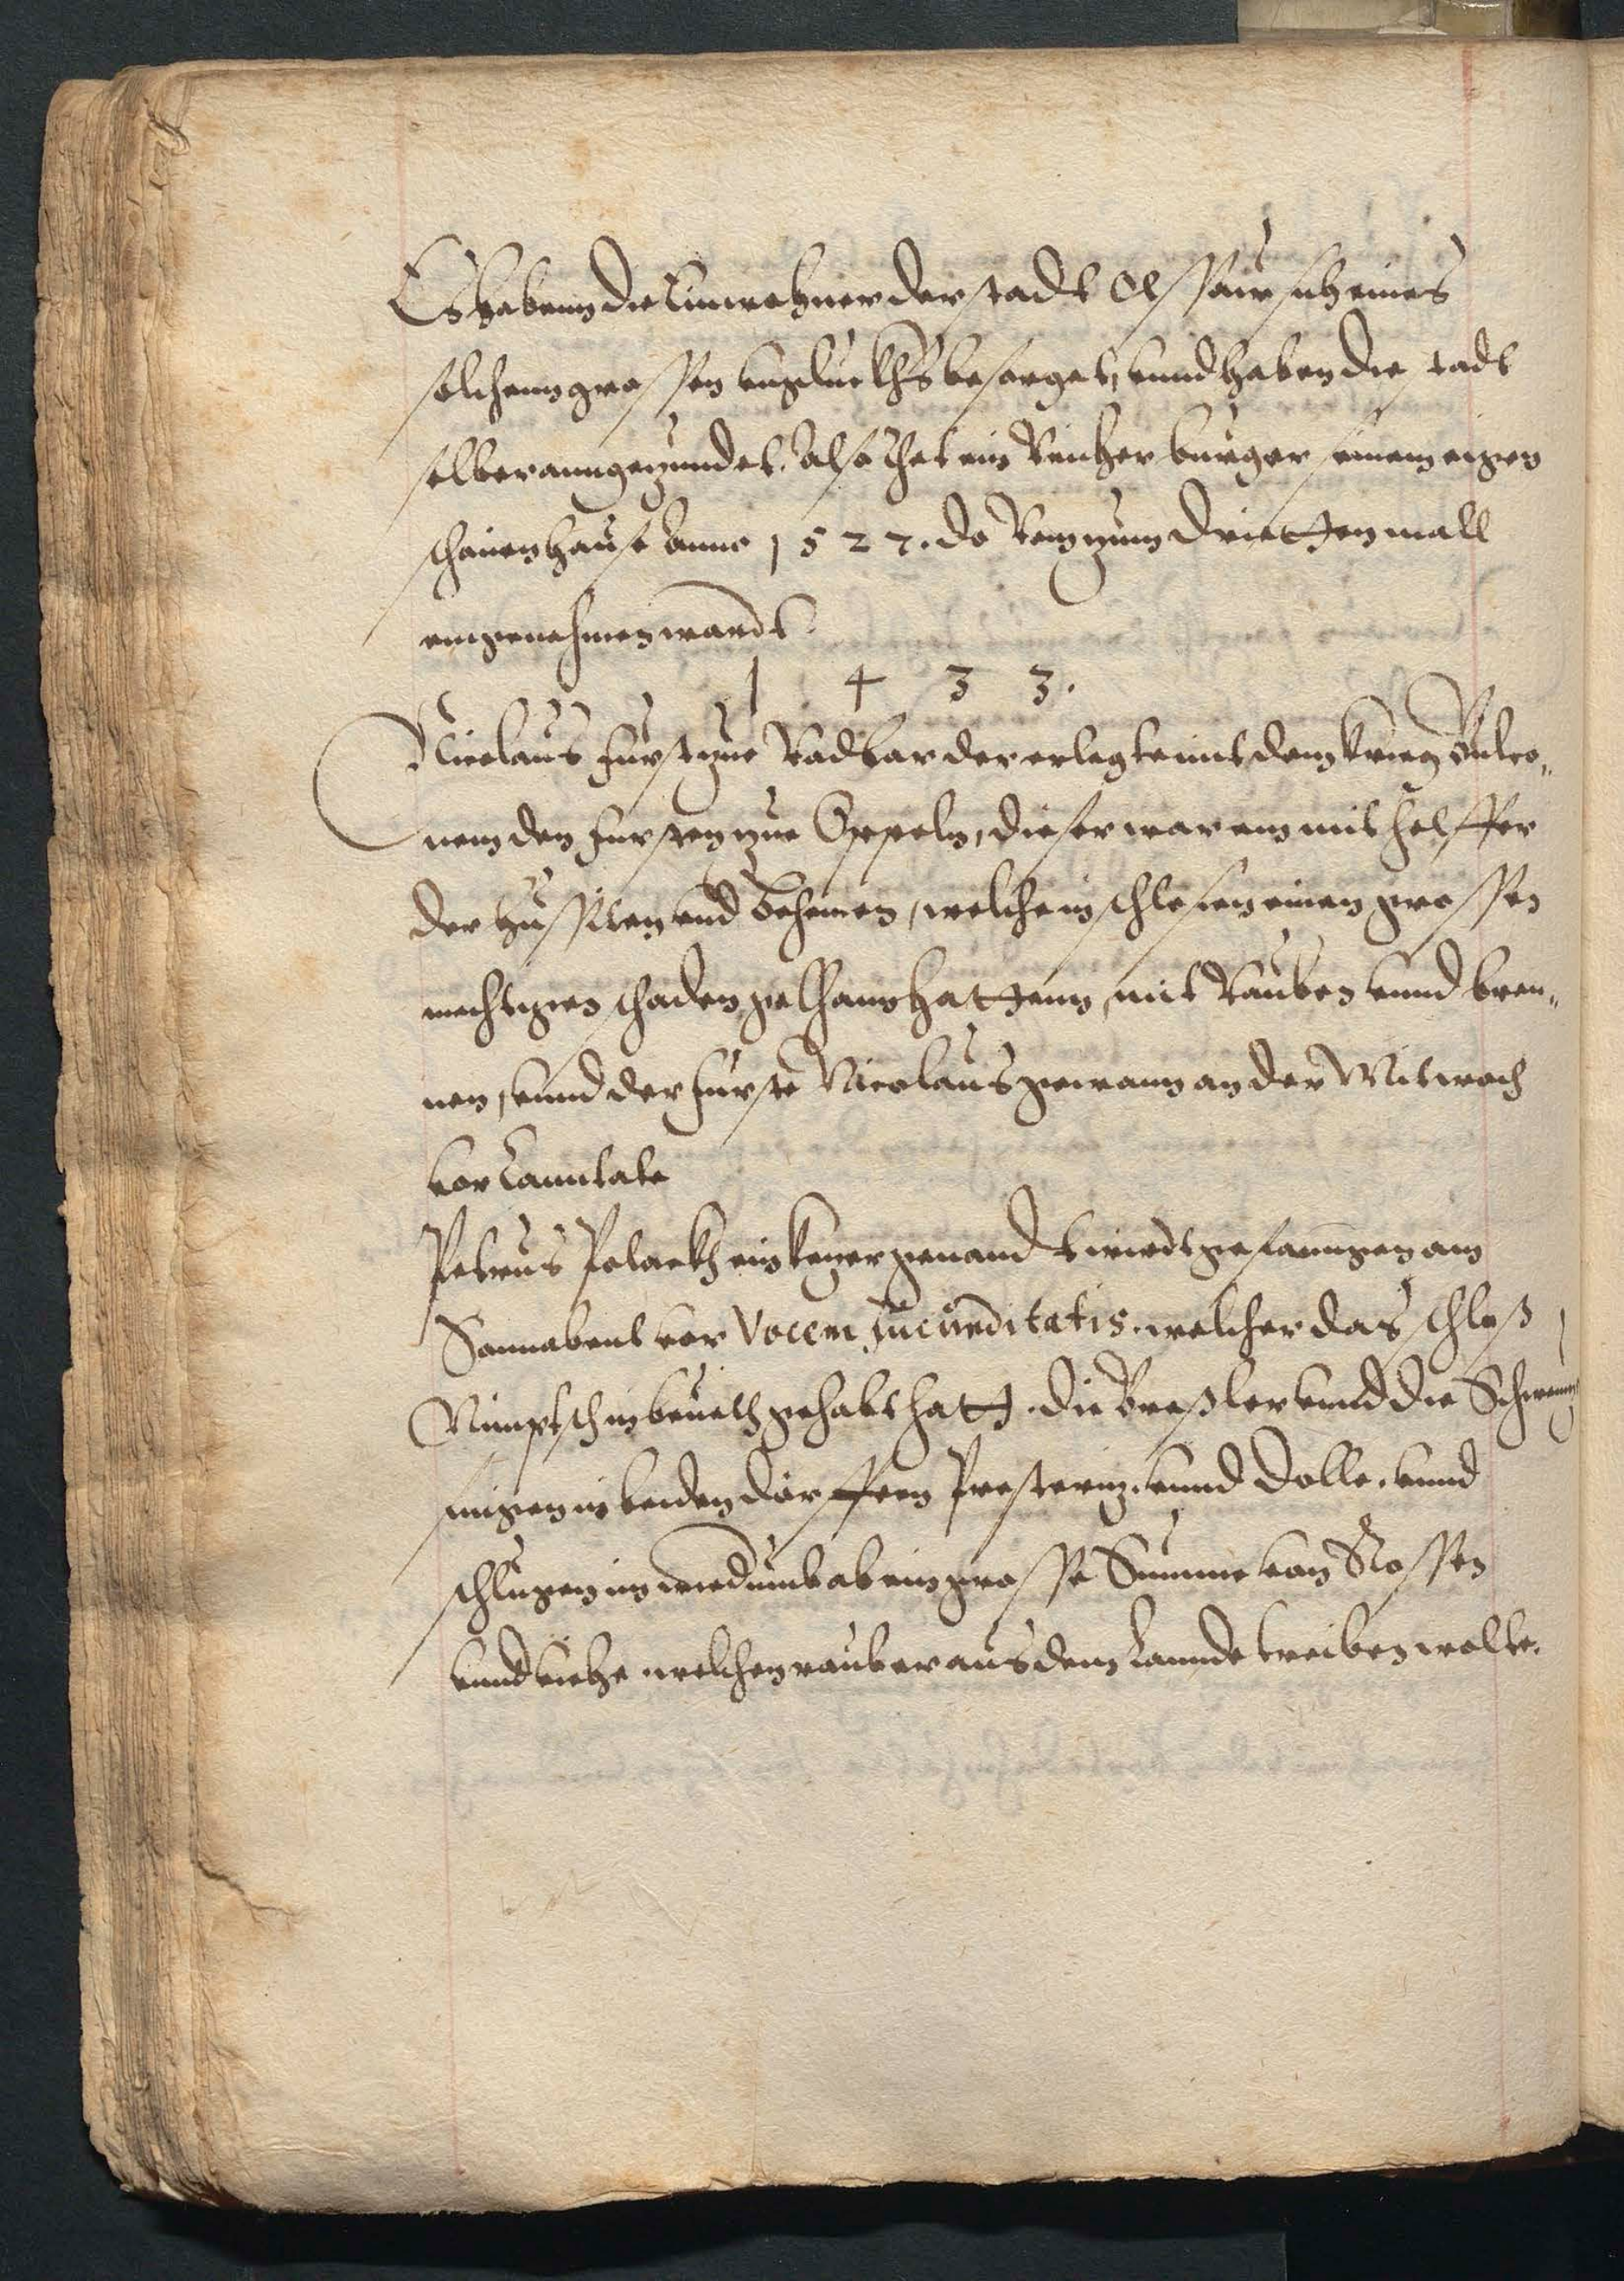 Es habenn die Einwohner der stadt Olssaw sich eines
solchenn grossen unglueckhs besorget, unnd haben die stadt
selber anngezundet. Also thet ein Reicher burger seinem eigen
schönen hause Anno 1527. do Rom zum drietten mall
eingenohmen wardt.
1 4 3 3.
Nicolaus furst zue Radbar der erlegte mit dem krieg Bulco,,
nem den fursten zue Oppeln, dieser war ein mithelffer
der hussiten und Behemen, welche in schlesien einen grossen
mechtigen schaden gethann hattenn, mit Rauben unnd bren,,
nen, unnd der furste Nicolaus gewann an der Mitwoch
vor Canntate
Petrus Polackh ein keyer genand wirdt gefanngen am
Sonnabent vor Vocem Jucunditatis. welcher das schloß
Nimptsch in beuelh gehabt hatt. die Breßler unnd die Schweni
fingen in beiden dörffern Presterin. unnd Dolle. unnd
schlugen im wiedumb ab ein grosse Summe von Rossen
unnd viehe. welchen raub er aus dem Lannde treiben wolte.